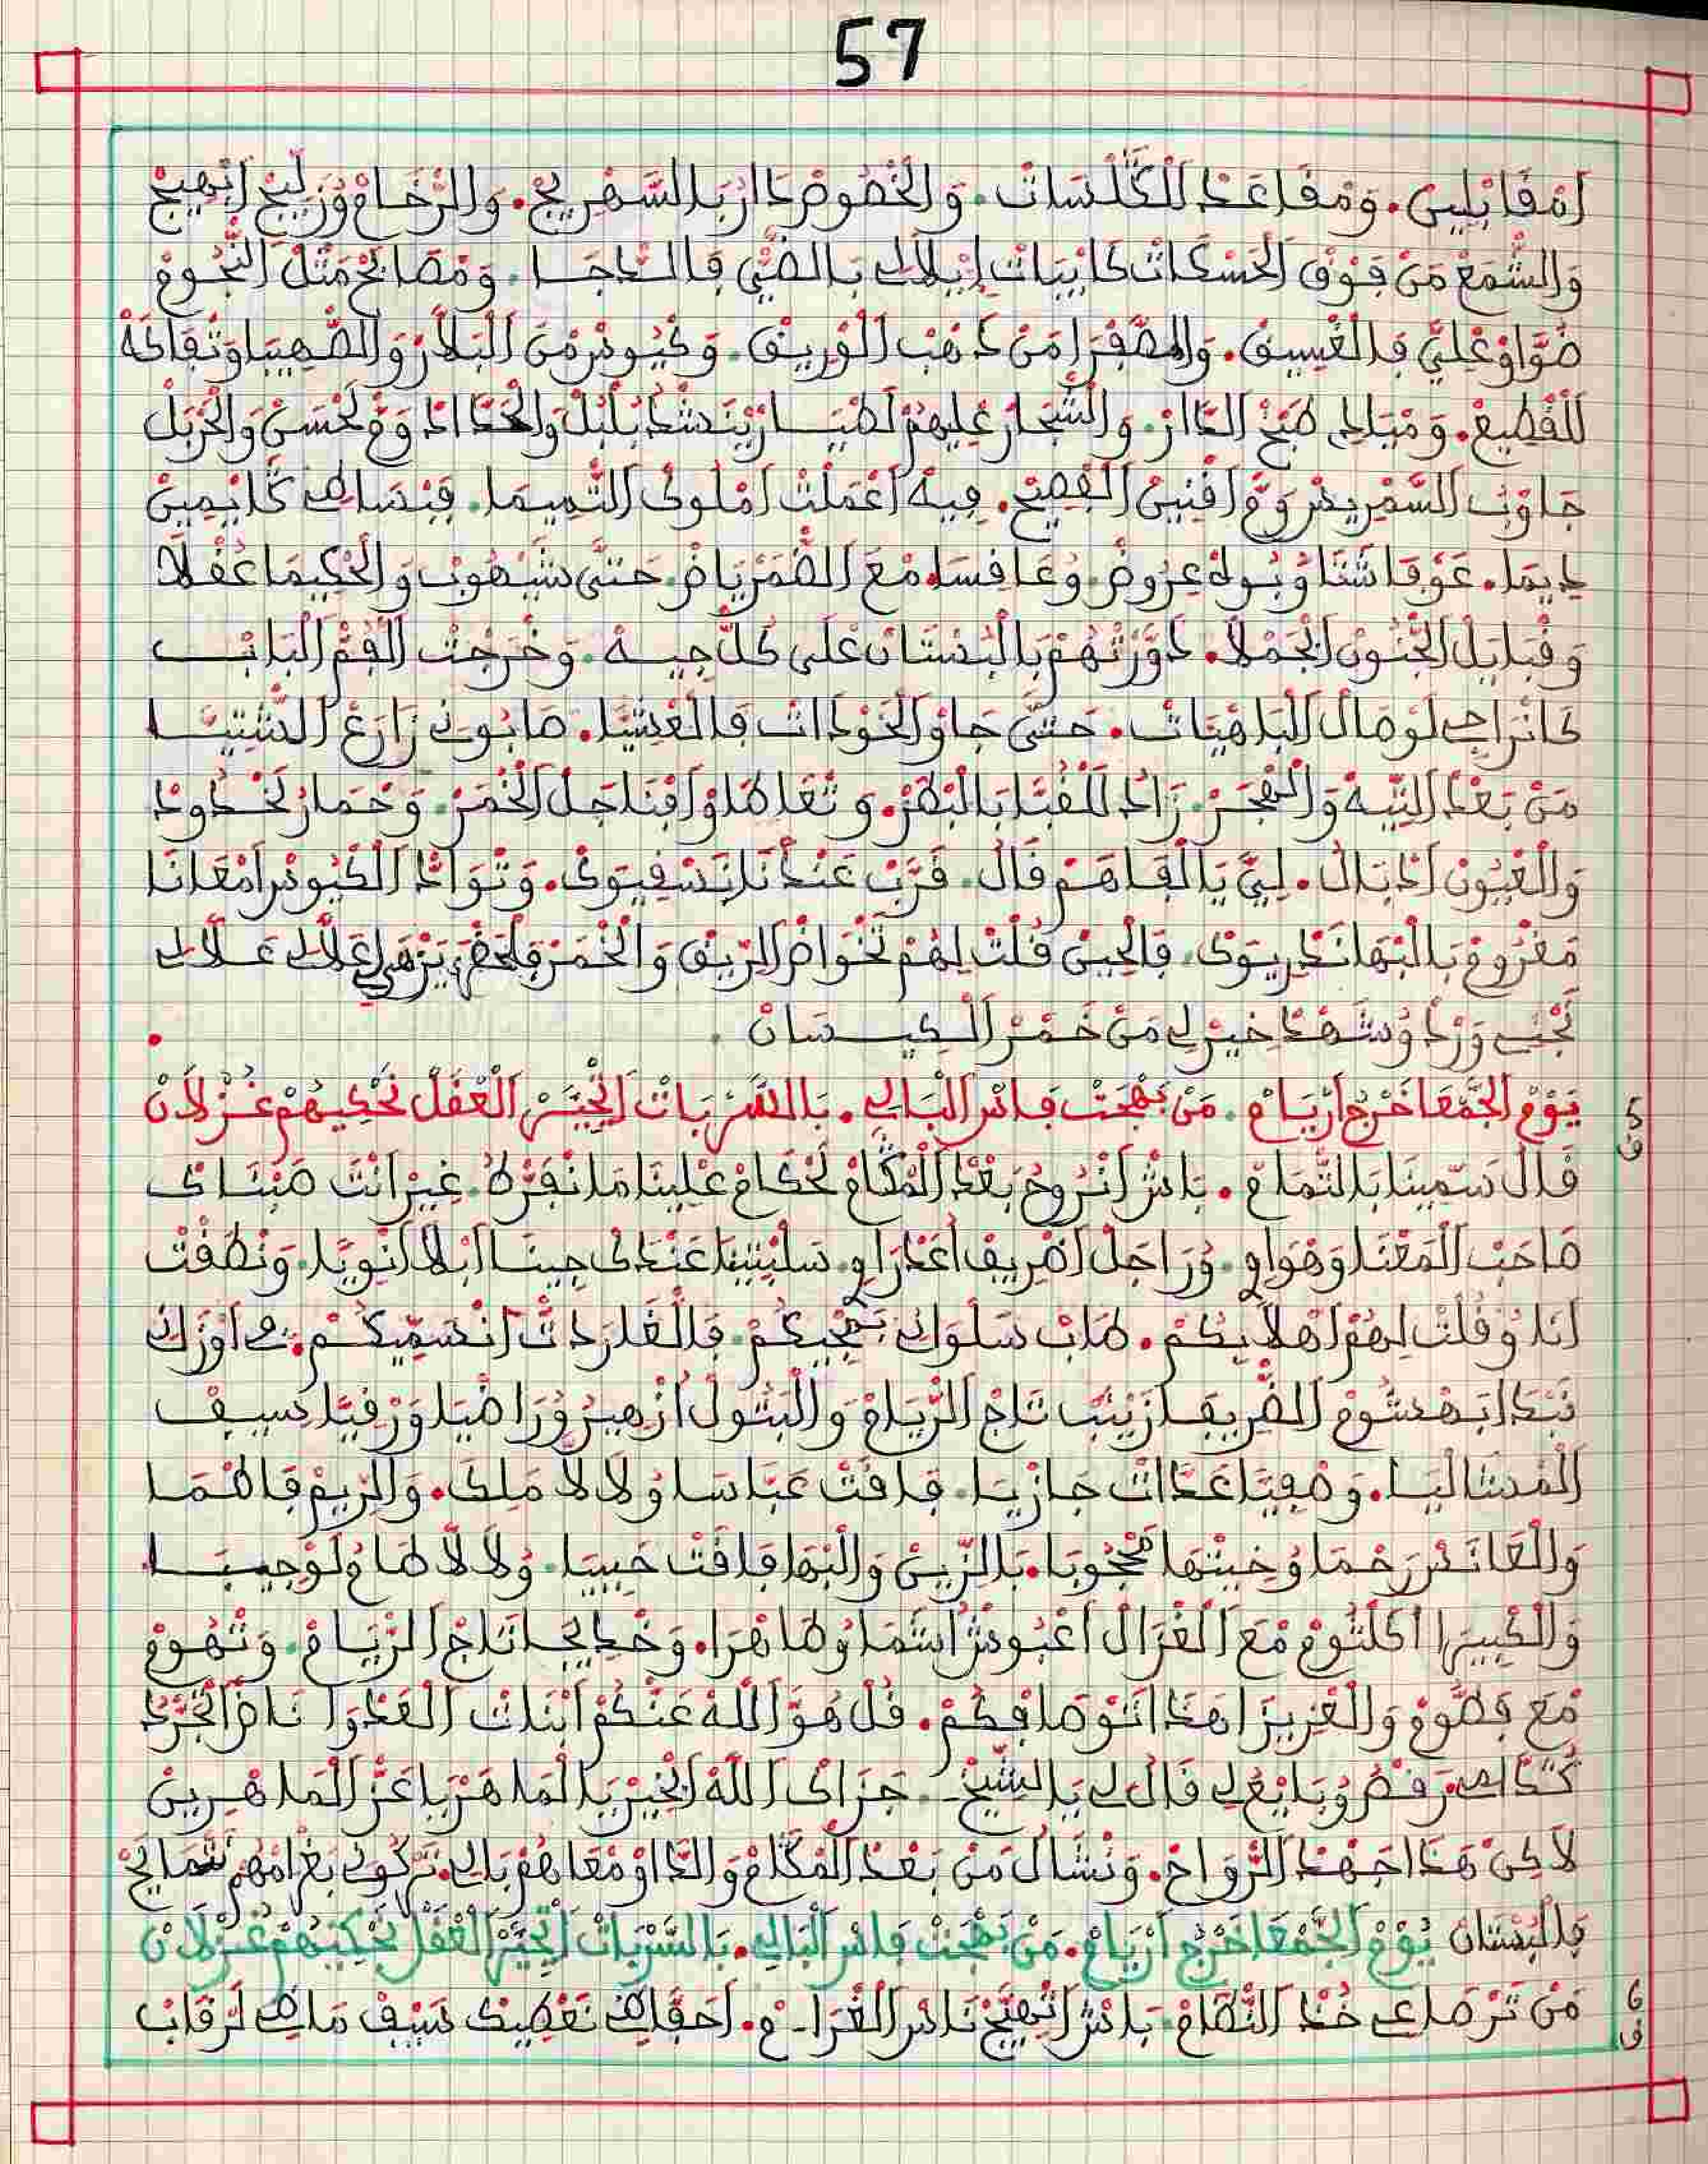 57
اَمْقَابْلِينْ. وَمْقَاعَدْ الْڭَلْسَاتْ. وَالْخَصُّوصْ دَارْ بَالسَّهْرِيجْ. وَالرّْخَامْ وُزَلِّيجْ اَبْهِيجْ
وَالشّْمَعْ مَنْ فُوقْ الْحَسْكَاتْ كَايْبَاتْ اِيْلَالِي بَالضَّيّْ فَالدَّاجَا. وَمْصَابَحْ مَثْلْ النّْجُومْ
ضَوَّاوْ عْلِيَّ فَالْغْسِيقْ. وَالصَّفْرَا مَنْ دْهَبْ الْوْرِيقْ. وَكْيُوسْ مْنَ الْبَلَّارْ وَالصّْهِيبَا وَتْفَاكَهْ
لَلْقْطِيعْ. وَمْبَالِي طَبْخْ الدَّارْ. وَالشّْجَارْ عْلِيهُمْ لَطْيَارْ يَنْشَدْ بُلْبُلْ وَالْحَدَّادْ وَمّْ لَحْسَنْ وَالْخَبَلْ
جَاوْبْ السَّمْرِيسْ وَمّْ اقْنِينْ الْفْصِيحْ. فِيهْ اعْمَلْتْ امْلُوكْ التّْمِيمَا. فِيسَاطْ كَايْمِينْ
دِيمَا. عَوْقَاشَتَا وْبُولْعِرُوضْ وُعَافِسَا مْعَ الضَّمْرِيَاضْ حَتَّى شَيْهُوبْ وَالْحْكِيمَا عُفْلَا
وَقْبَايَلْ الْجّْنُونْ الْجَمْلَا. دَوَّرْتْهُمْ بَالْبُسْتَانْ عْلَى كُلّْ جِيهْ. وَخْرَجْتْ الْفُمّْ الْبَابْ
كَانْرَاجِي لَوْصَالْ الْبَاهْيَاتْ. حَتَّى جَاوْ الْخَوْدَاتْ فَالْعْشِيَّا. صَابُونِي زَارَعْ الشّْتِيتَا
مَنْ بَعْدْ التِّيهْ وَالْهْجَرْ. زَادْ لَلْقُبَّا بَالْبْطَرْ. وَتْعَاطَاوْ اقْنَاجَلْ الْخْمَرْ. وَحْمَارْ لَخْدُودْ
وَالْعْيُونْ اذْبَالْ. لِيَّ يَا الْفَاهَمْ قَالْ. قَرَّبْ عَنْدْنَا نَسْقِيوَكْ. وَتْوَادّْ الْكْيُوسْ امْعَانَا
مَغْرُومْ بَالْبْهَا نَدْرِيوَكْ. فَالْحِينْ قُلْتْ لِهُمْ نَخْوَاضْ الرِّيقْ وَالْخْمَرْ عْلَالِي عَلَالِي
نَجْنِي وَرْدْ وُشَهْدْ خِيرْ لِي مَنْ خَمْرْ الْكِيسَانْ
يَوْمْ الْجَّمْعَا خَرْجُ ارْيَامْ. مَنْ بَهْجَتْ فَاسْ الْبَالِي. بَالسَّرْبَاتْ اتْحَيَّرْ الْعْقَلْ نَحْكِيهُمْ غُزْلَانْ
5
ق
قَالْ سَمِّينَا بَالتّْمَامْ. بَاشْ انْرُوحُ بَعْدْ الْمْڭَامْ لَحْكَامْ عْلِينَا مَا نْفَرّْطُ. غِيرْ انْتَ صَبْنَاكْ
صَاحَبْ الْمَعْنَا وَهْوَاوِي. وُرَاجَلْ اظْرِيفْ اعْدْرَاوِي. سَلِيتِينَا عَنْدَكْ جِينَا ابْلَا انْوِيَّا. وَنْطَقْتْ
اَنَا وُقُلْتْ لِهُمْ اهْلَا بِكُمْ. طَابْ سَلْوَانِي بَهْجِيكُمْ. فَالْغَارَدَاتْ انْسَمِّيكُمْ. مِي اوْزَانِي
نَبْدَا بَهْشُومْ الظّْرِيفَا زَيْنَبْ تَاجْ الرّْيَامْ وَالْبَتُولْ ازْهِيرُ وُرَاضْيَا وَرْقِيَّا سِيفْ
الْمْشَالْيَا. وَصْفِيَّا عَدَّاتْ جَازْيَا. فَاقَتْ عَبَّاسَا وُلَالَّا مَلَكَ. وَالرِّيمْ فَاطْمَا
وَالْعَانَسْ رَحْمَا وُخِيتْهَا مَحْجُوبَا. بَالزِّينْ وَالْبْهَا فَاقَتْ حَبِيبَا. وُلَالَّا طَامُو لَوْجِيبَا
وَالْكْبِيرَا اكَلْتُومْ مْعَ الْغْزَالْ اعْبُوشْ اشَمَا وُطَاهْرَا. وَخْدِيجَا تَاجْ الرّْيَامْ. وَتْهُومْ
مْعَ فَطُّومْ وَالْعْزِيزَا هَدَا انْتُو صَافِكُمْ. قُلْ هُوَ اللهْ عَنْكُمْ ابْنَاتْ الْعَدْوَا نَاضْ الْجَّرْدْ
كَدَّامِي رْقَصْ وُبَايَعْ لِي قَالْ لِي يَا الشِّيخْ. جَزَاكْ اللهْ الْخِيرْ يَا الْمَاهَرْ يَا عَزّْ الْمَاهْرِينْ
لَاكِنْ هَذَا جَهْدْ الرّْوَاحْ. وَنْشَالْ مَنْ بَعْدْ الْمْڭَامْ وَالدَّاوْ مْعَاهُمْ بَالِي. تَرْكُونِي بَغْرَامْهُمْ نَتْمَايَحْ
فَالْبُسْتَانْ يُوْمْ الْجَّمْعَا خَرْجُ ارْيَامْ. مَنْ بَهْجَتْ فَاسْ الْبَالِي. بَالسَّرْبَاتْ اتْحَيَّرْ الْعْقَلْ نَحْكِيهُمْ غُزْلَانْ
6
ق
مَنْ تَرْصَاعِي خُدْ النّْظَامْ. بَاشْ اتْهَيَّجْ نَاسْ الْغْرَامْ. اَحَفَّاظِي نَعْطِيكْ سِيفْ مَاضِي لَرْقَابْ